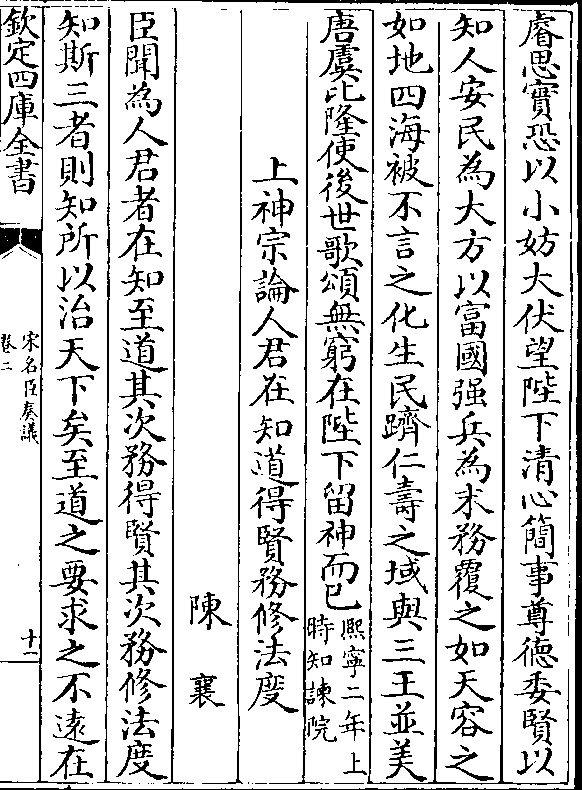 睿思實恐以小妨大伏望陛下清心簡事尊德委賢以
知人安民為大方以富國强兵為末務覆之如天容之
如地四海被不言之化生民躋仁壽之域與三王並美
唐虞比隆使後世歌頌無窮在陛下留神而已熙寧二年上
時知諫院
上神宗論人君在知道得賢務修法度
陳襄
臣聞為人君者在知至道其次務得賢其次務修法度
知斯三者則知所以治天下矣至道之要求之不遠在
欽定四庫全書
宋名臣奏議
卷二
十一